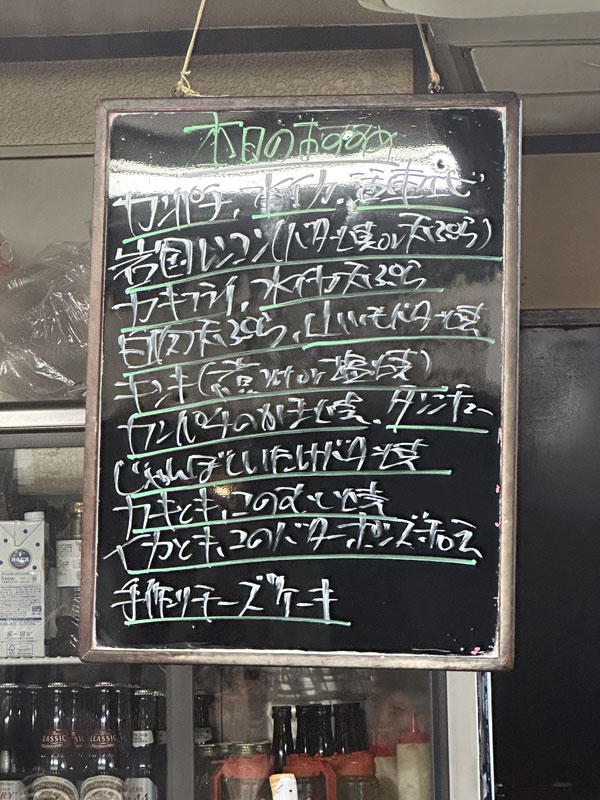 本日のおすすめ
カンパチ、水イカ、活車エビ
岩国レンコン(バター焼or天ぷら)
カキフライ、水イカ天ぷら
白子天ぷら、山いもバター焼
キンキ(煮つけor塩焼)
カンパチのかま焼、タンシチュー
じゃんぼしいたけバター焼
カキときのこのむし焼
イカときのこのバターポンズホイル
手作りチーズケーキ
CLASSIC
CLASSIC